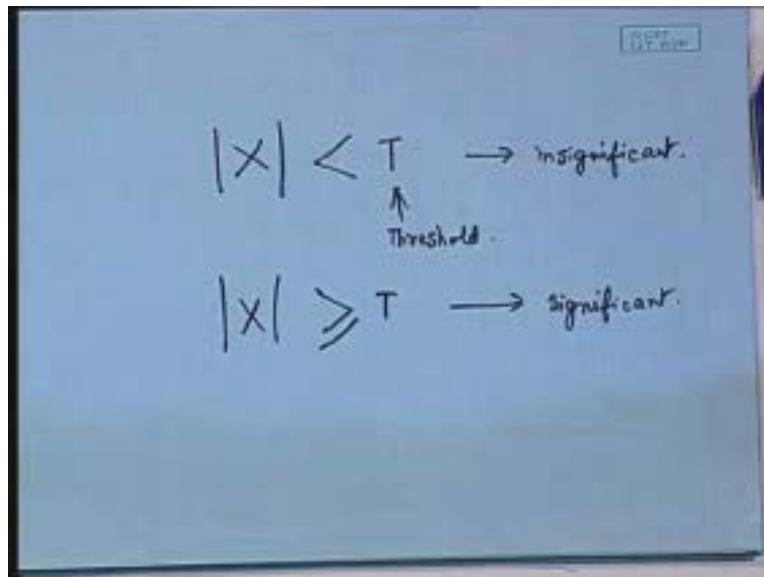 |X| < T → insignificant.
↑
Threshold.
|X| ⩾ T → significant.